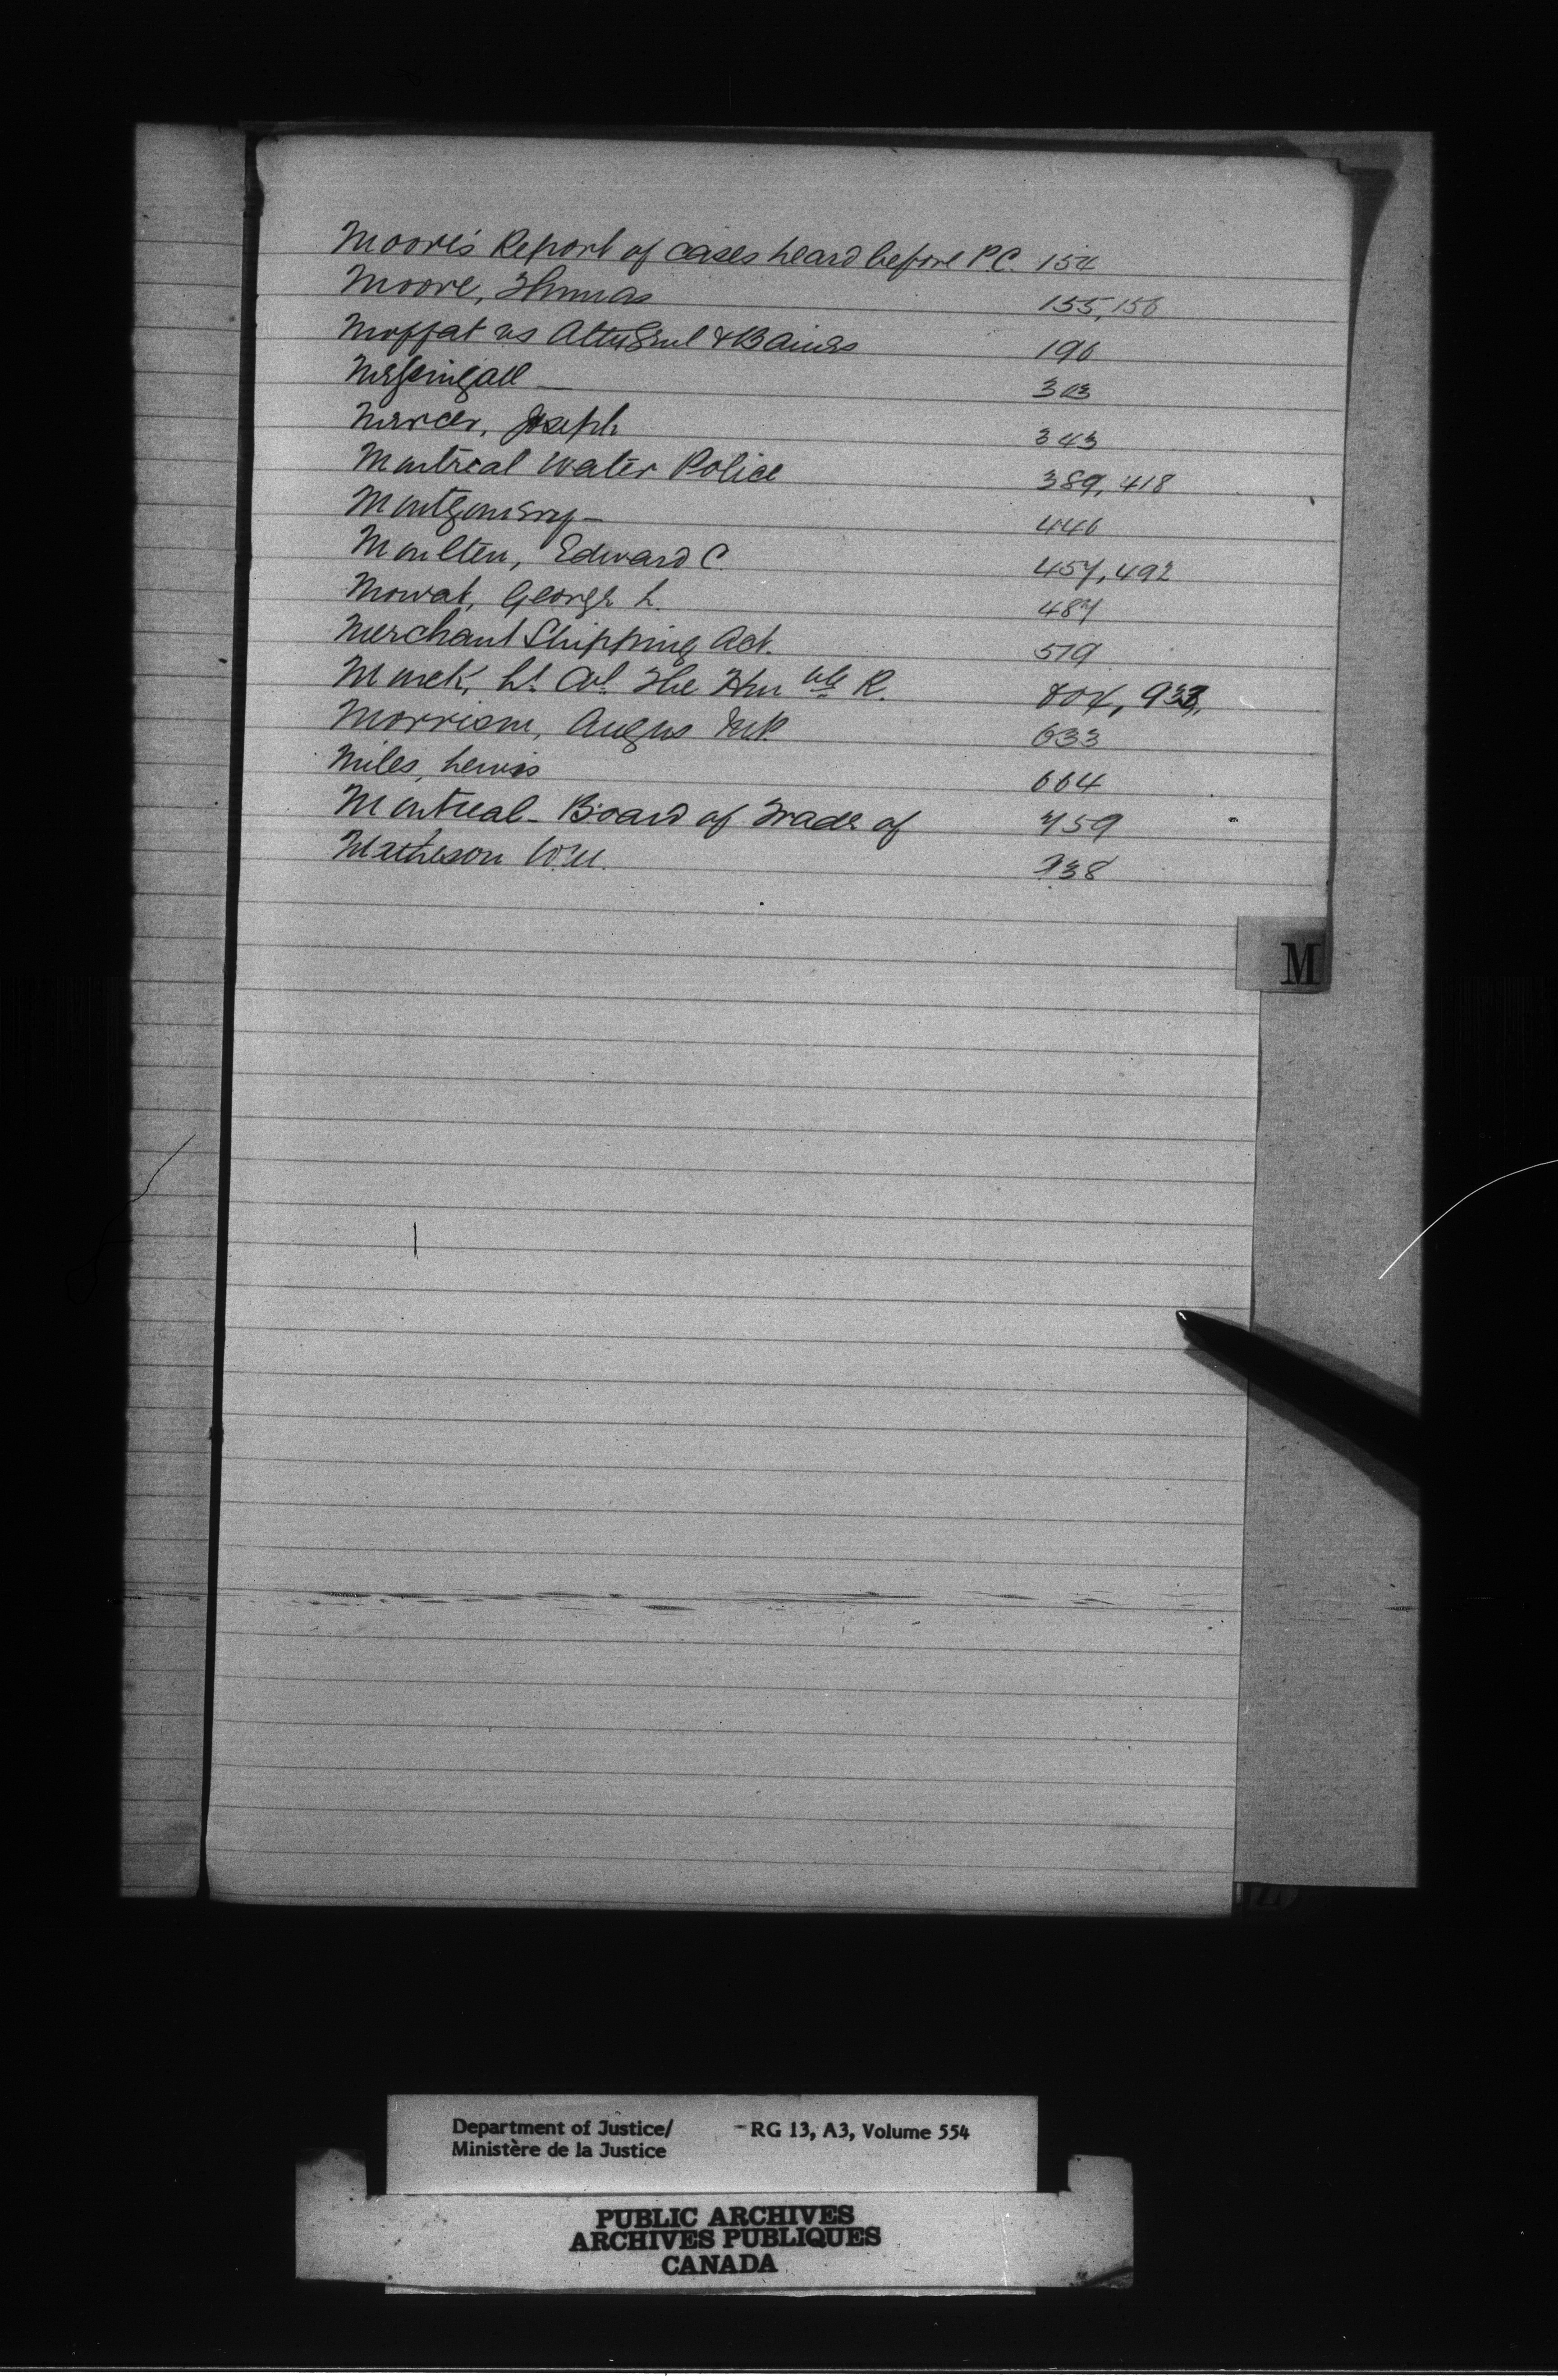 Moore's Report of cases heard before P.C. 154
Moore, Thomas 155, 156
Moffat vs Atty Genl & Bains 196
303
Mercer, Joseph 343
Montreal Water Police 389, 418
Montgomery - 446
Moulten, Edward C. 457, 492
Mowat, George L. 487
Merchant Shipping Act. 519
Lt. Col. The Hon ble R. 804,
Morrison, Angus M.P. 633
Miles, Lewis 664
Montreal - Board of Trade of 759
Matheson Wm. 738
M
Department of Justice/ - RG 13, A3, Volume 554
Ministère de la Justice
PUBLIC ARCHIVES
ARCHIVES PUBLIQUES
CANADA